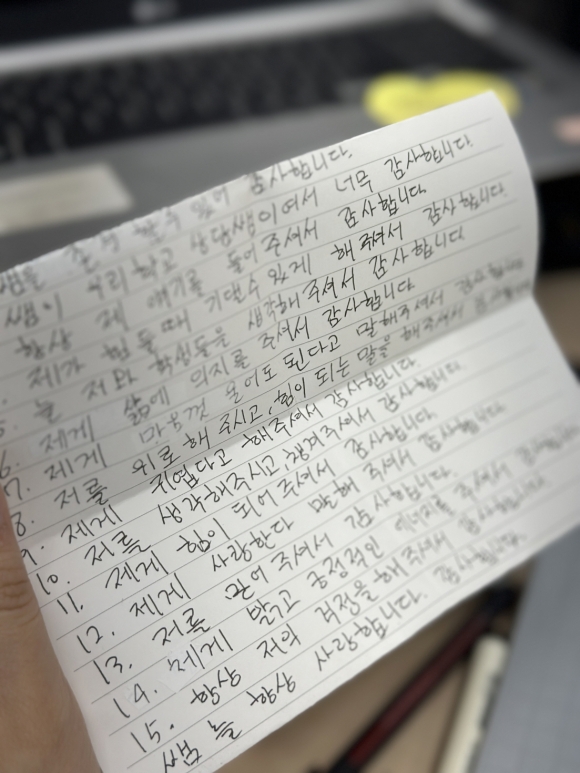 쌤을 감사합니다.
쌤이 우리 학교 상담쌤이여서 너무 감사합니다.
항상 제 얘기를 들어주셔서 감사합니다.
제가 힘들 때 기댈수 있게 해주셔서 감사합니다.
5. 늘 저와 학생들을 생각해주셔서 감사합니다
6. 제게 삶에 의지를 주셔서 감사합니다
7. 제게 마음껏 울어도 된다고 말해주셔서 감사합니다
8. 저를 위로해 주시고, 힘이 되는 말을 해주셔서
9. 제게 귀엽다고 해주셔서 감사합니다.
10. 저를 생각해주시고, 챙겨주셔서 감사합니다
11. 제게 힘이 되어 주셔서 감사합니다.
12. 제게 사랑한다 말해 주셔서 감사합니다
13. 저를 믿어 주셔서 감사합니다
14. 제게 밝고 긍정적인 에너지를 주셔서
15. 항상 저의 걱정을 해 주셔서 감사합니다.
쌤 늘 항상 사랑합니다. 감사합니다.